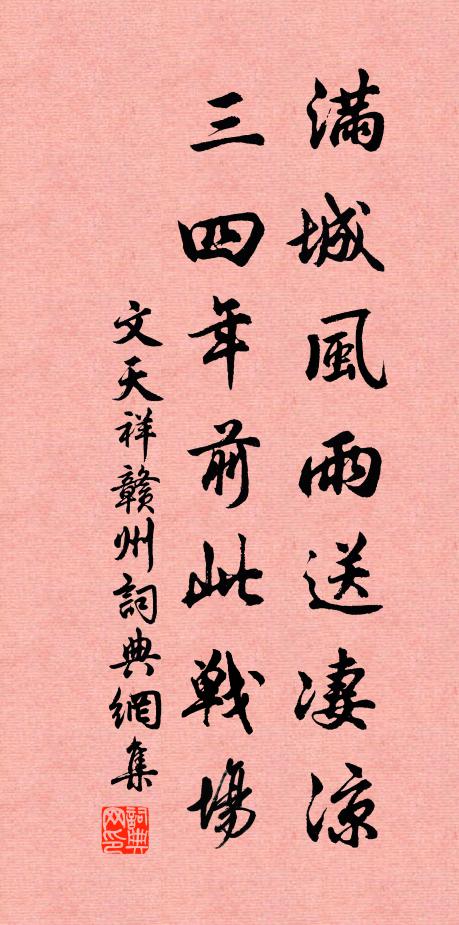 滿城風雨送凄涼
三四年前此戰場
文天祥贛州詞典網集
詞典網印